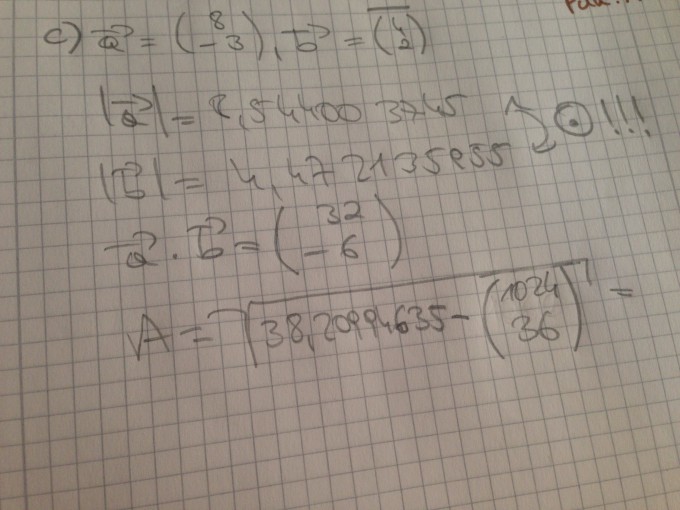 c) a⃗ = (8 -3), b⃗ = (4 2)
|a⃗| = 8,544003745
|b⃗| = 4,472135955 ⊙!!!
a⃗ · b⃗ = (32 -6)
A = √38,20994635 - (1024 36) =